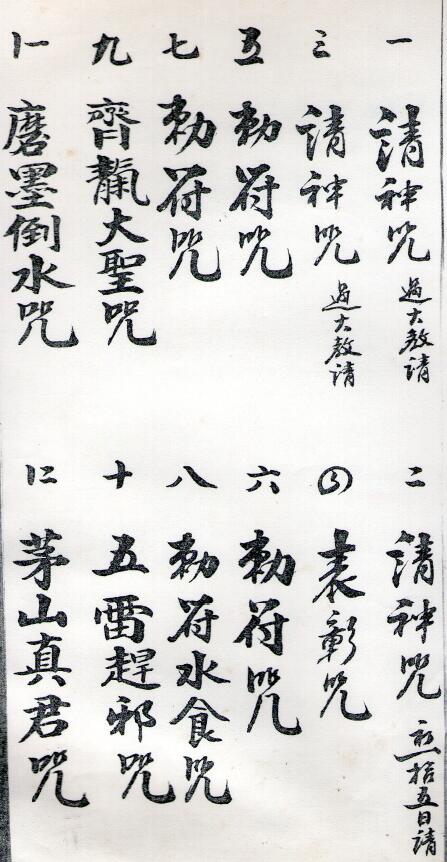 一 請神咒 過大教請
二 請神咒 初一拾五日請
三 請神咒 過大教請
四 表彰咒
五 勅符咒
六 勅符咒
七 勅符咒
八 勅符水食咒
九 齊靝大聖咒
十 五雷趕邪咒
十一 磨墨倒水咒
十二 茅山真君咒